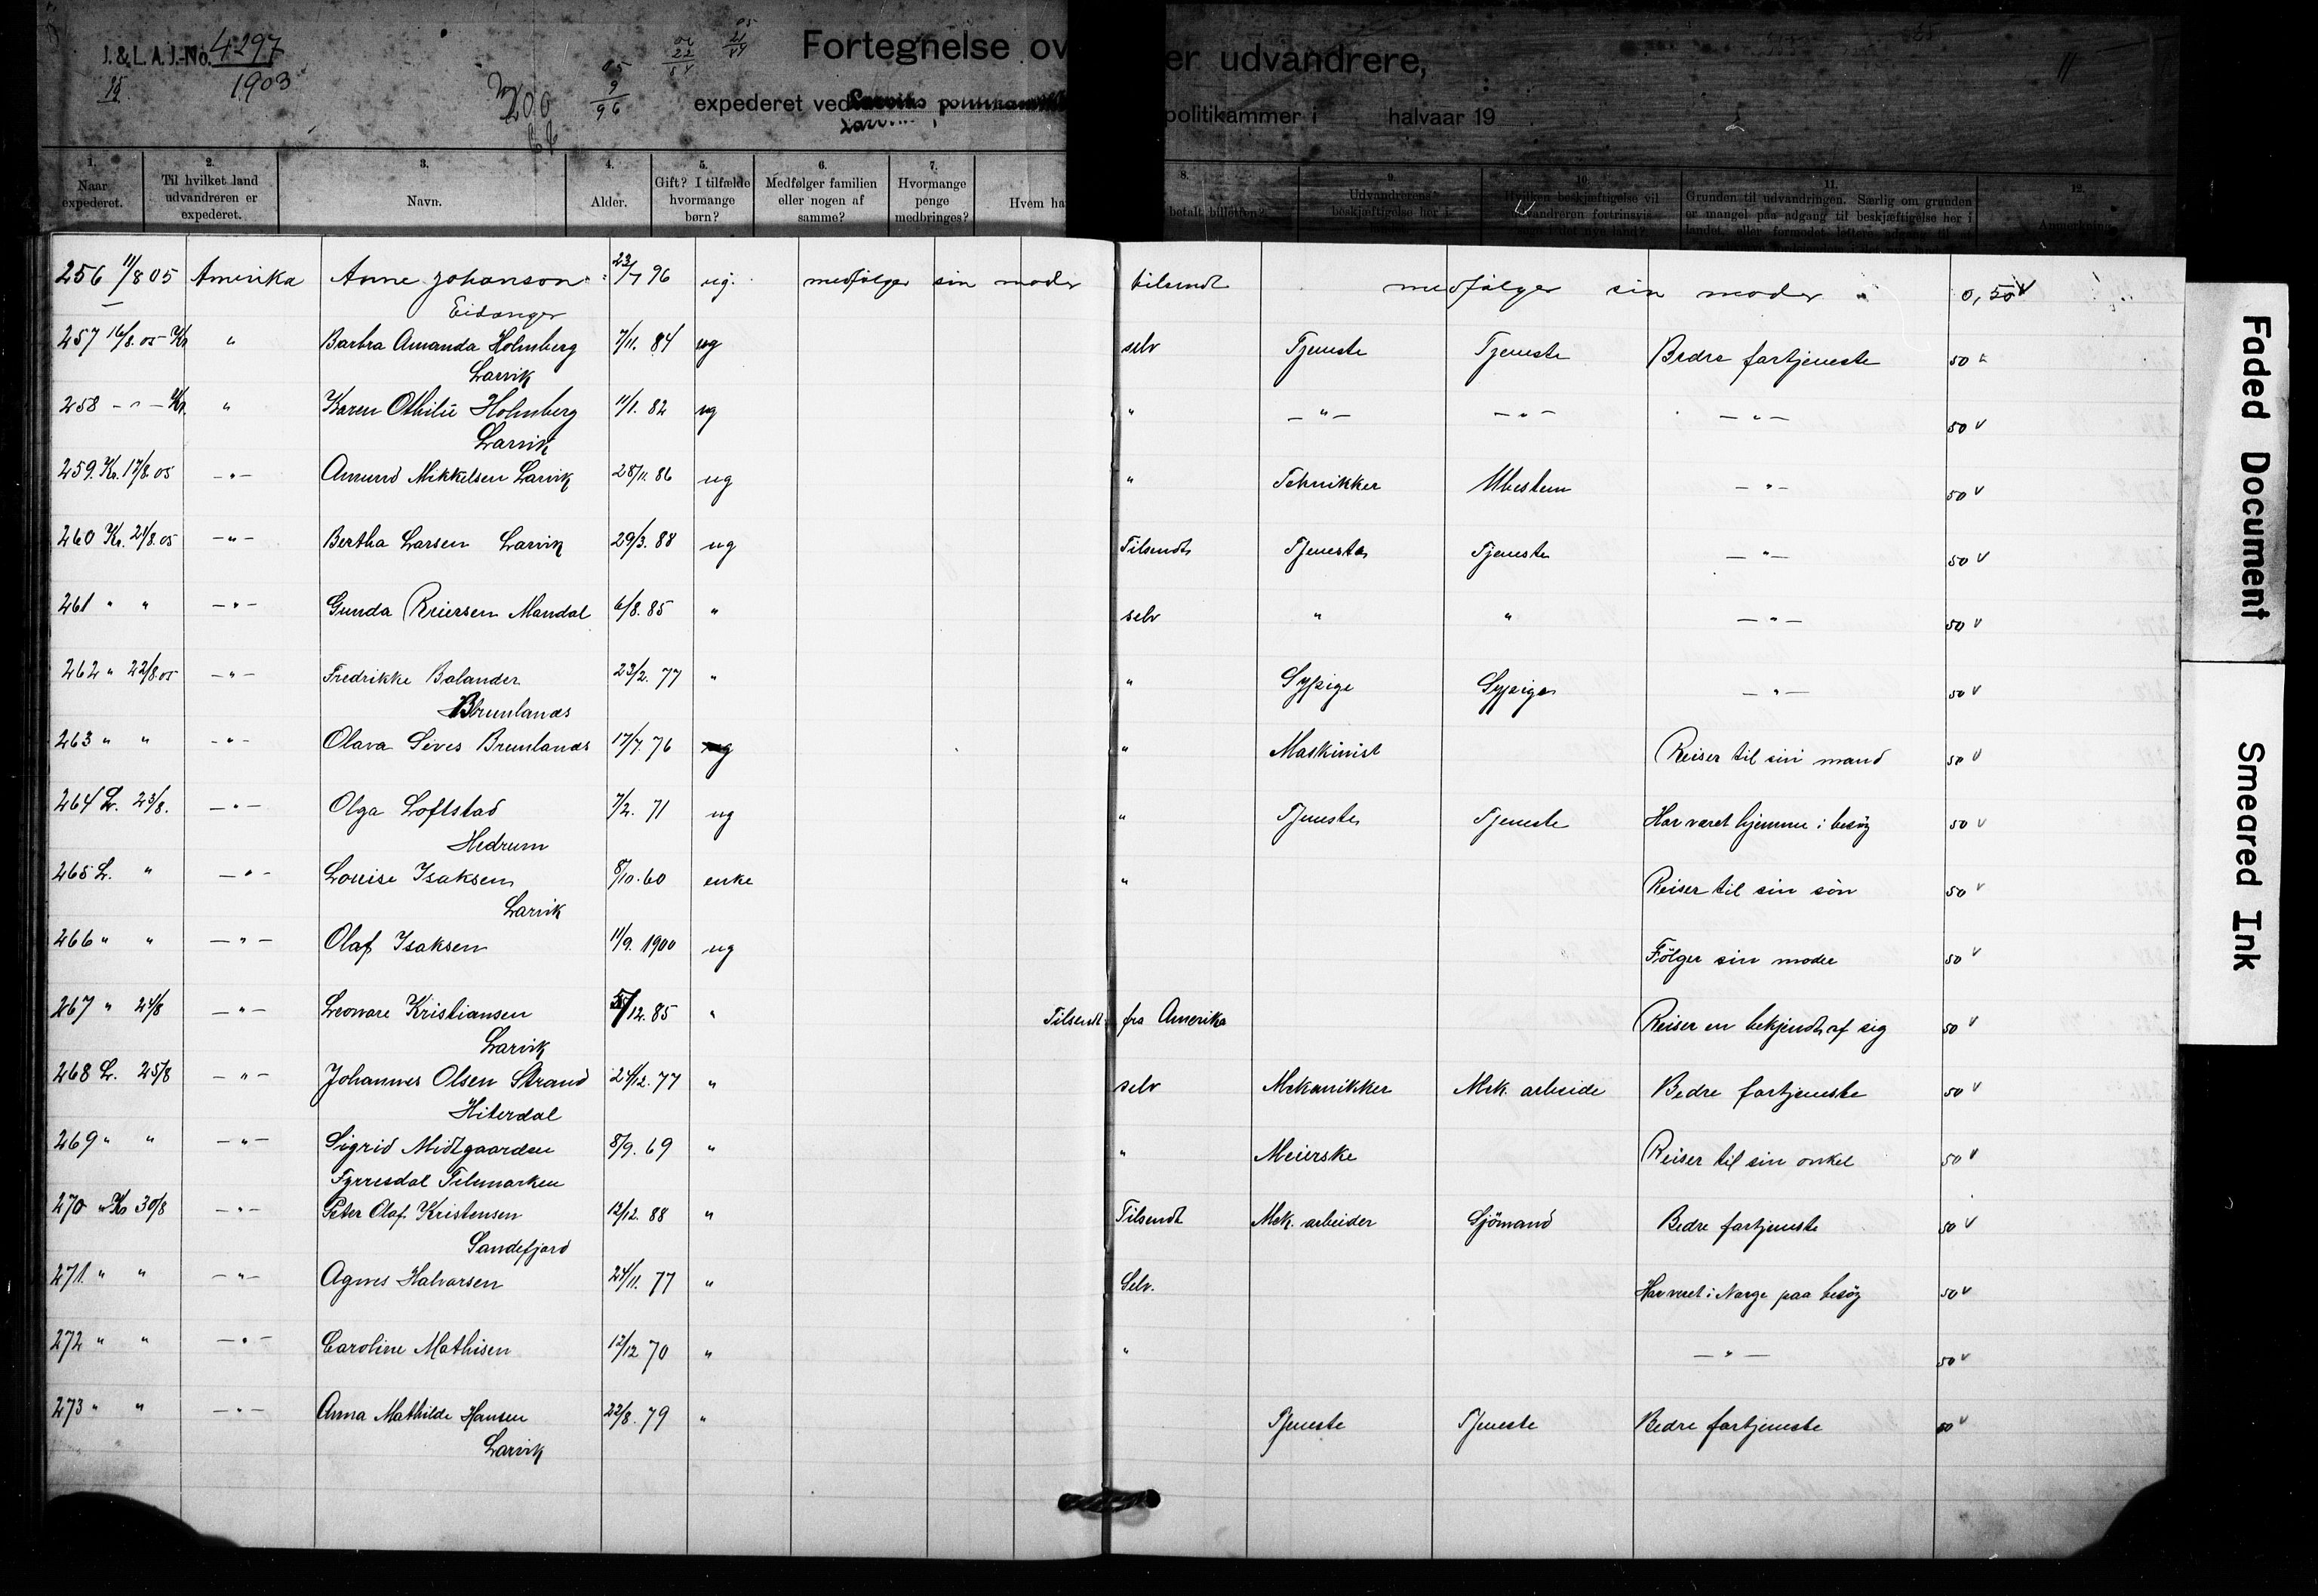 J. & L. A. J.-No. 4297
1903
Fortegnelse over udvandrere,
expederet ved Larviks politikammer politikammer i halvaar 19
1. Naar expederet.
2. Til hvilket land udvandreren er expederet.
3. Navn.
4. Alder.
5. Gift? I tilfælde hvormange børn?
6. Medfølger familien eller nogen af samme?
7. Hvormange penge medbringes?
8. Hvem har betalt billetten?
9. Udvandrerens beskjæftigelse her i
10. Hvilken beskjæftigelse vil udvandreren fortrinsvis
11. Grunden til udvandringen. Særlig om grunden er mangel paa adgang til beskjæftigelse her i landet, eller formodet lettere adgang til
12. Anmerkning.
256 11/8 05 Amerika Anne Johanson 23/7 96 ug. medfølger sin moder tilsendt medfølger sin moder 0,50 v
Eidanger
257 16/8.05 Kr " Barbra Amanda Holmberg 7/11. 84 ug selv Tjeneste Tjeneste Bedre fortjeneste 50 v
Larvik
258 - " - Kr. " Karen Othilie Holmberg 11/1. 82 ug " - " - - " - - " - 50 v
Larvik
259. Kr. 17/8.05 - " - Amund Mikkelsen Larvik 28/11. 86 ug " Tehnikker Ubestem - " - 50 v
260 Kr. 21/8.05 - " - Bertha Larsen Larvik 29/3. 88 ug Tilsendt Tjeneste Tjeneste - " - 50 v
261 " " - " - Gunda Reiersen Mandal 6/8. 85 " selv " " - " - 50 v
262 " 22/8.05 - " - Fredrikke Bolander 23/2. 77 " " Sypige Sypige - " - 50 v
Brunlanæs
263 " " - " - Olava Sives Brunlanæs 17/7. 76 ug " Maskinist Reiser til sin mand 50 v
264 L. 23/8. - " - Olga Loftstad 7/2. 71 ug " Tjeneste Tjeneste Har været hjemme i besøg 50 v
Hedrum
265 L. " - " - Louise Isaksen 8/10.60 enke " Reiser til sin søn 50 v
Larvik
266 " " - " - Olaf Isaksen 11/9. 1900 ug Følger sin moder 50 v
267 " 24/8 - " - Leonore Kristiansen 5/12. 85 " Tilsendt fra Amerika Reiser en bekjendt af sig 50 v
Larvik
268 L. 25/8 - " - Johannes Olsen Strand 24/12. 77 " selv Mekanikker Mek. arbeide Bedre fortjeneste 50 v
Hiterdal
269 " " - " - Sigrid Midtgaarden 8/9. 69 " " Meierske Reiser til sin onkel 50 v
Fyrresdal Telemarken
270 " Kr 30/8 - " - Peter Olaf Kristensen 12/12. 88 " Tilsendt Mek. arbeider Sjømand Bedre fortjeneste 50 v
Sandefjord
271. " " - " - Agnes Halvorsen 24/11. 77 " Selv. Har været i Norge paa besøg 50 v
272 " " - " - Caroline Mathisen 12/12 70 " " - " - 50 v
273 " " - " - Anna Mathilde Hansen 22/8. 79 " Tjeneste Tjeneste Bedre fortjeneste 50 v
Larvik
Faded Document
Smeared Ink